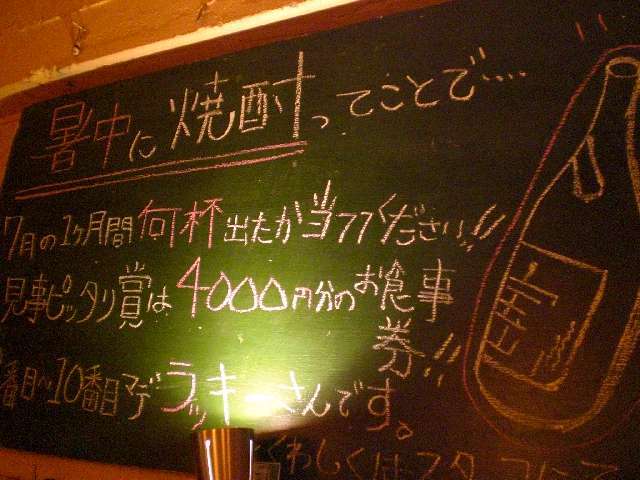 暑中に焼酎ってことで....
7月の1ヶ月間何杯出たか当ててください!!
見事ピッタリ賞は4000円分のお食事
券!!
番目〜10番目マデラッキ さんです。
くわしくはスタ